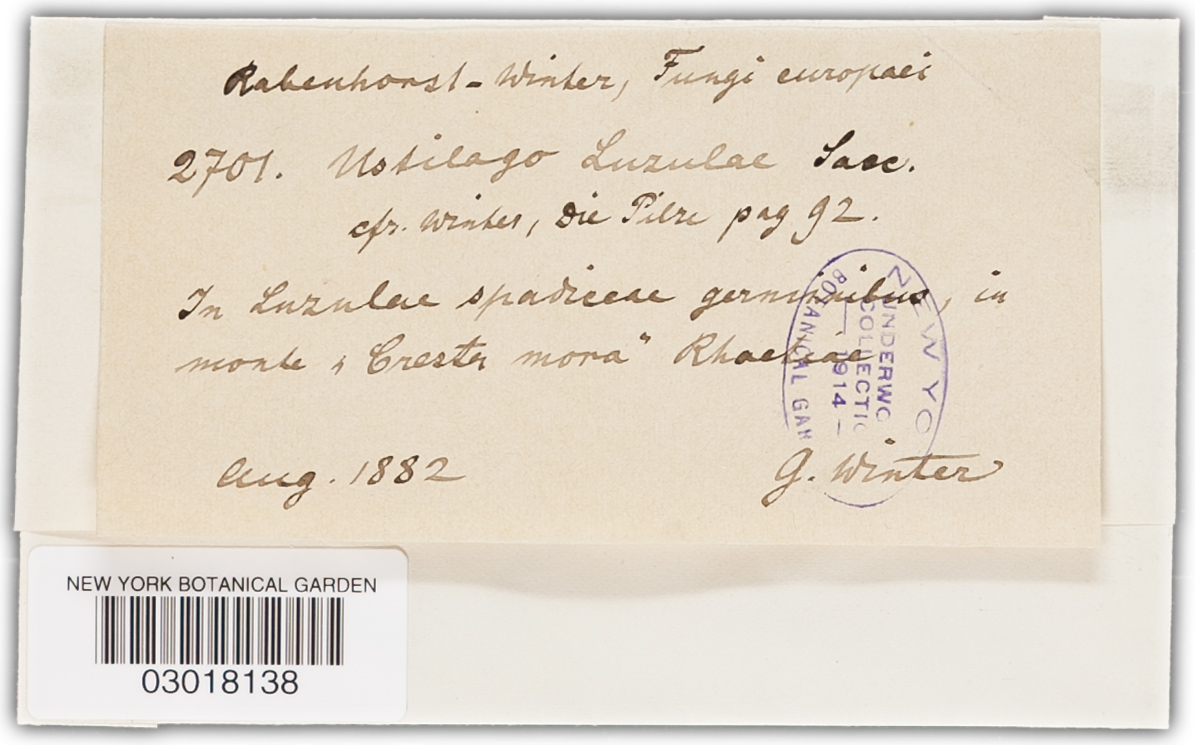 Rabenhorst-Winter, Fungi europaei
2701. Ustilago Luzulae Sacc.
cfr. Winter, Die Pilze pag 92.
In Luzulae spadiceae germinibus, in
monte „Cresta mora" Rhaetiae
Aug. 1882
G. Winter
NEW YO
BOTANICAL GAR
UNDERWO
COLLECTIO
— 1914 —
NEW YORK BOTANICAL GARDEN
03018138